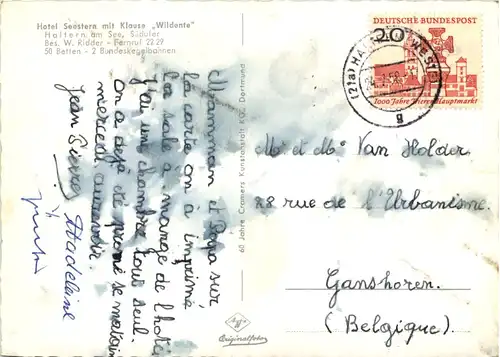 Hotel Seestern mit Klause „Wildente"
Haltern am See, Südufer
Bes. W. Ridder - Fernruf 22 29
50 Betten - 2 Bundeskegelbahnen
Mamman et Papa sur
la carte on a imprimé
la sale a mange de l'hotel
J'ai une chambre tout seul.
on a déjà de promé se matain
merci au revoir.
Jean Pierre Madeleine
60 Jahre Cramers Kunstanstalt KG, Dortmund
Originalfoto
DEUTSCHE BUNDESPOST
20
1000 Jahre Trierer Hauptmarkt
(21a) HALTERN (WESTF)
g
Mr et Me Van Holder
28 rue de l'Urbanisme.
Ganshoren.
(Belgique)